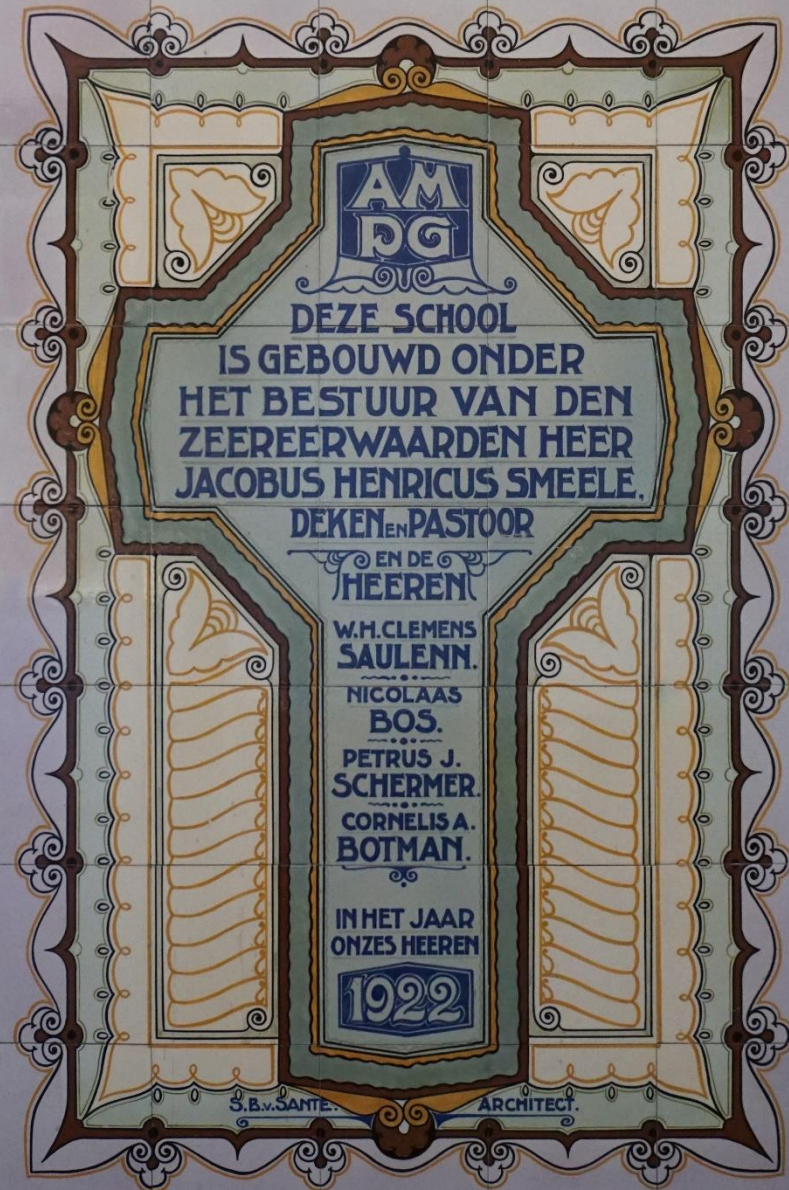 AM
DG
DEZE SCHOOL
IS GEBOUWD ONDER
HET BESTUUR VAN DEN
ZEEREERWAARDEN HEER
JACOBUS HENRICUS SMEELE,
DEKEN EN PASTOOR
EN DE
HEEREN
W.H. CLEMENS
SAULENN.
NICOLAAS
BOS.
PETRUS J.
SCHERMER.
CORNELIS A.
BOTMAN.
IN HET JAAR
ONZES HEEREN
1922
S.B.v.SANTE. ARCHITECT.